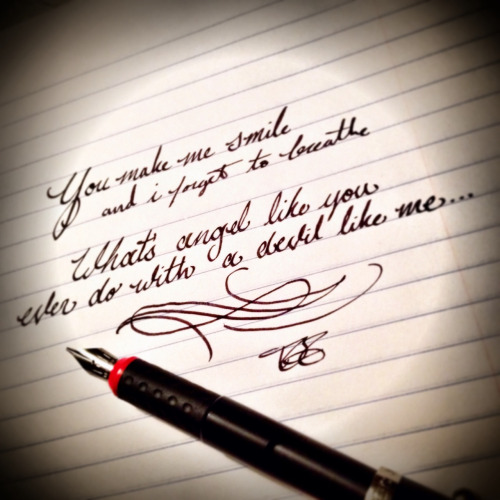 You make me smile
and i forget to breathe
What's angel like you
ever do with a devil like me...